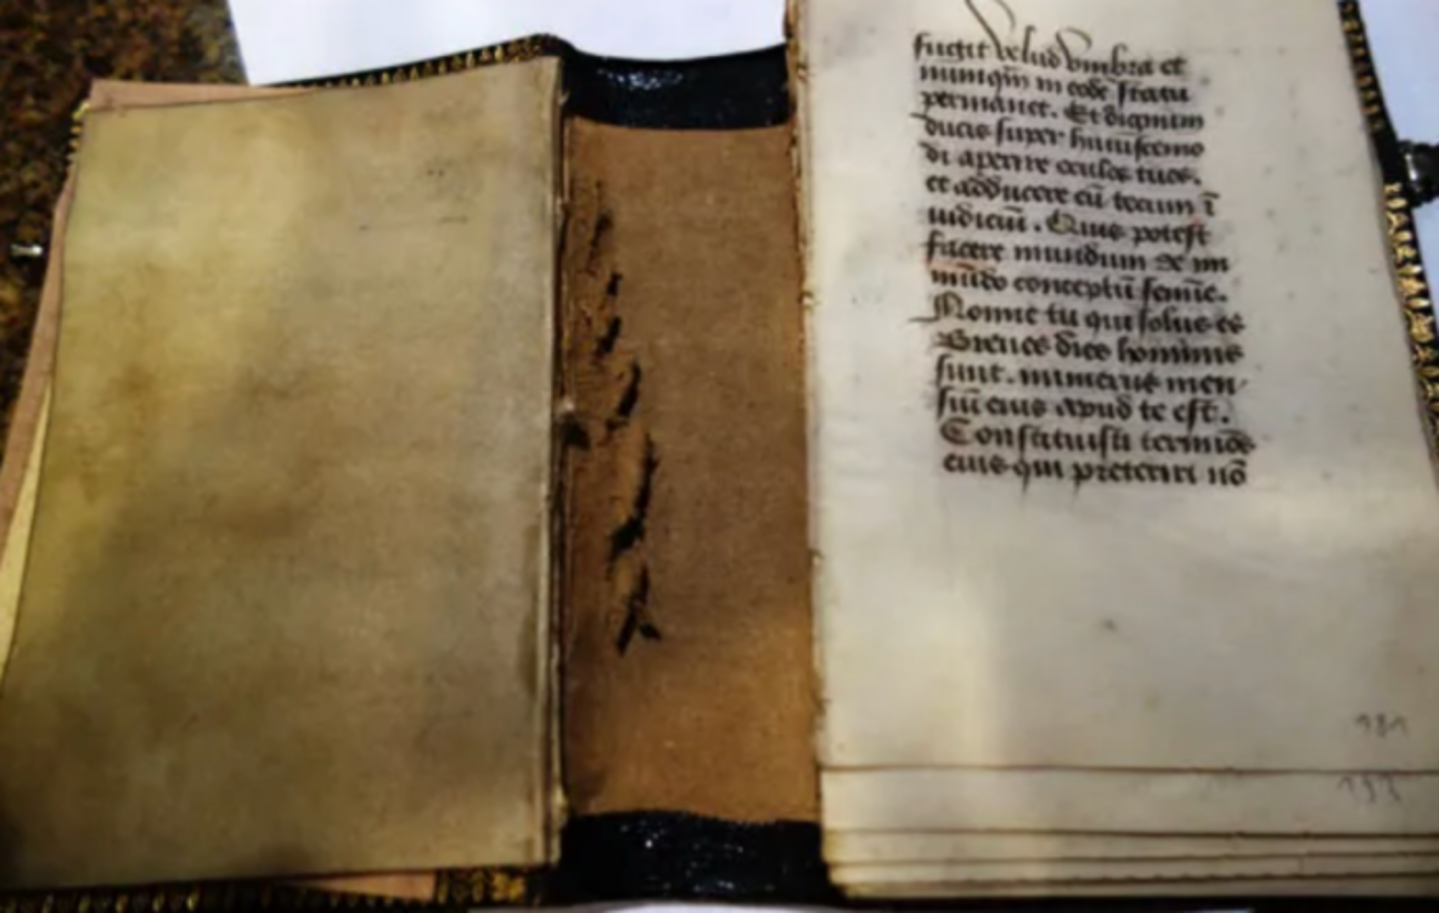 fugit velud vmbra et
nunqm̄ in eodē statu
permanet. Et dignum
ducis super huiuscemo
di aperire oculos tuos.
et adducere cū tecum ī
iudiciū. Quis potest
facere mundum de im
mūdo conceptū semīe.
Nonne tu qui solus es
Breues dies hominis
sunt. numerus men
siū eius apud te est.
Constituisti termīos
eius qui preteriri nō
181